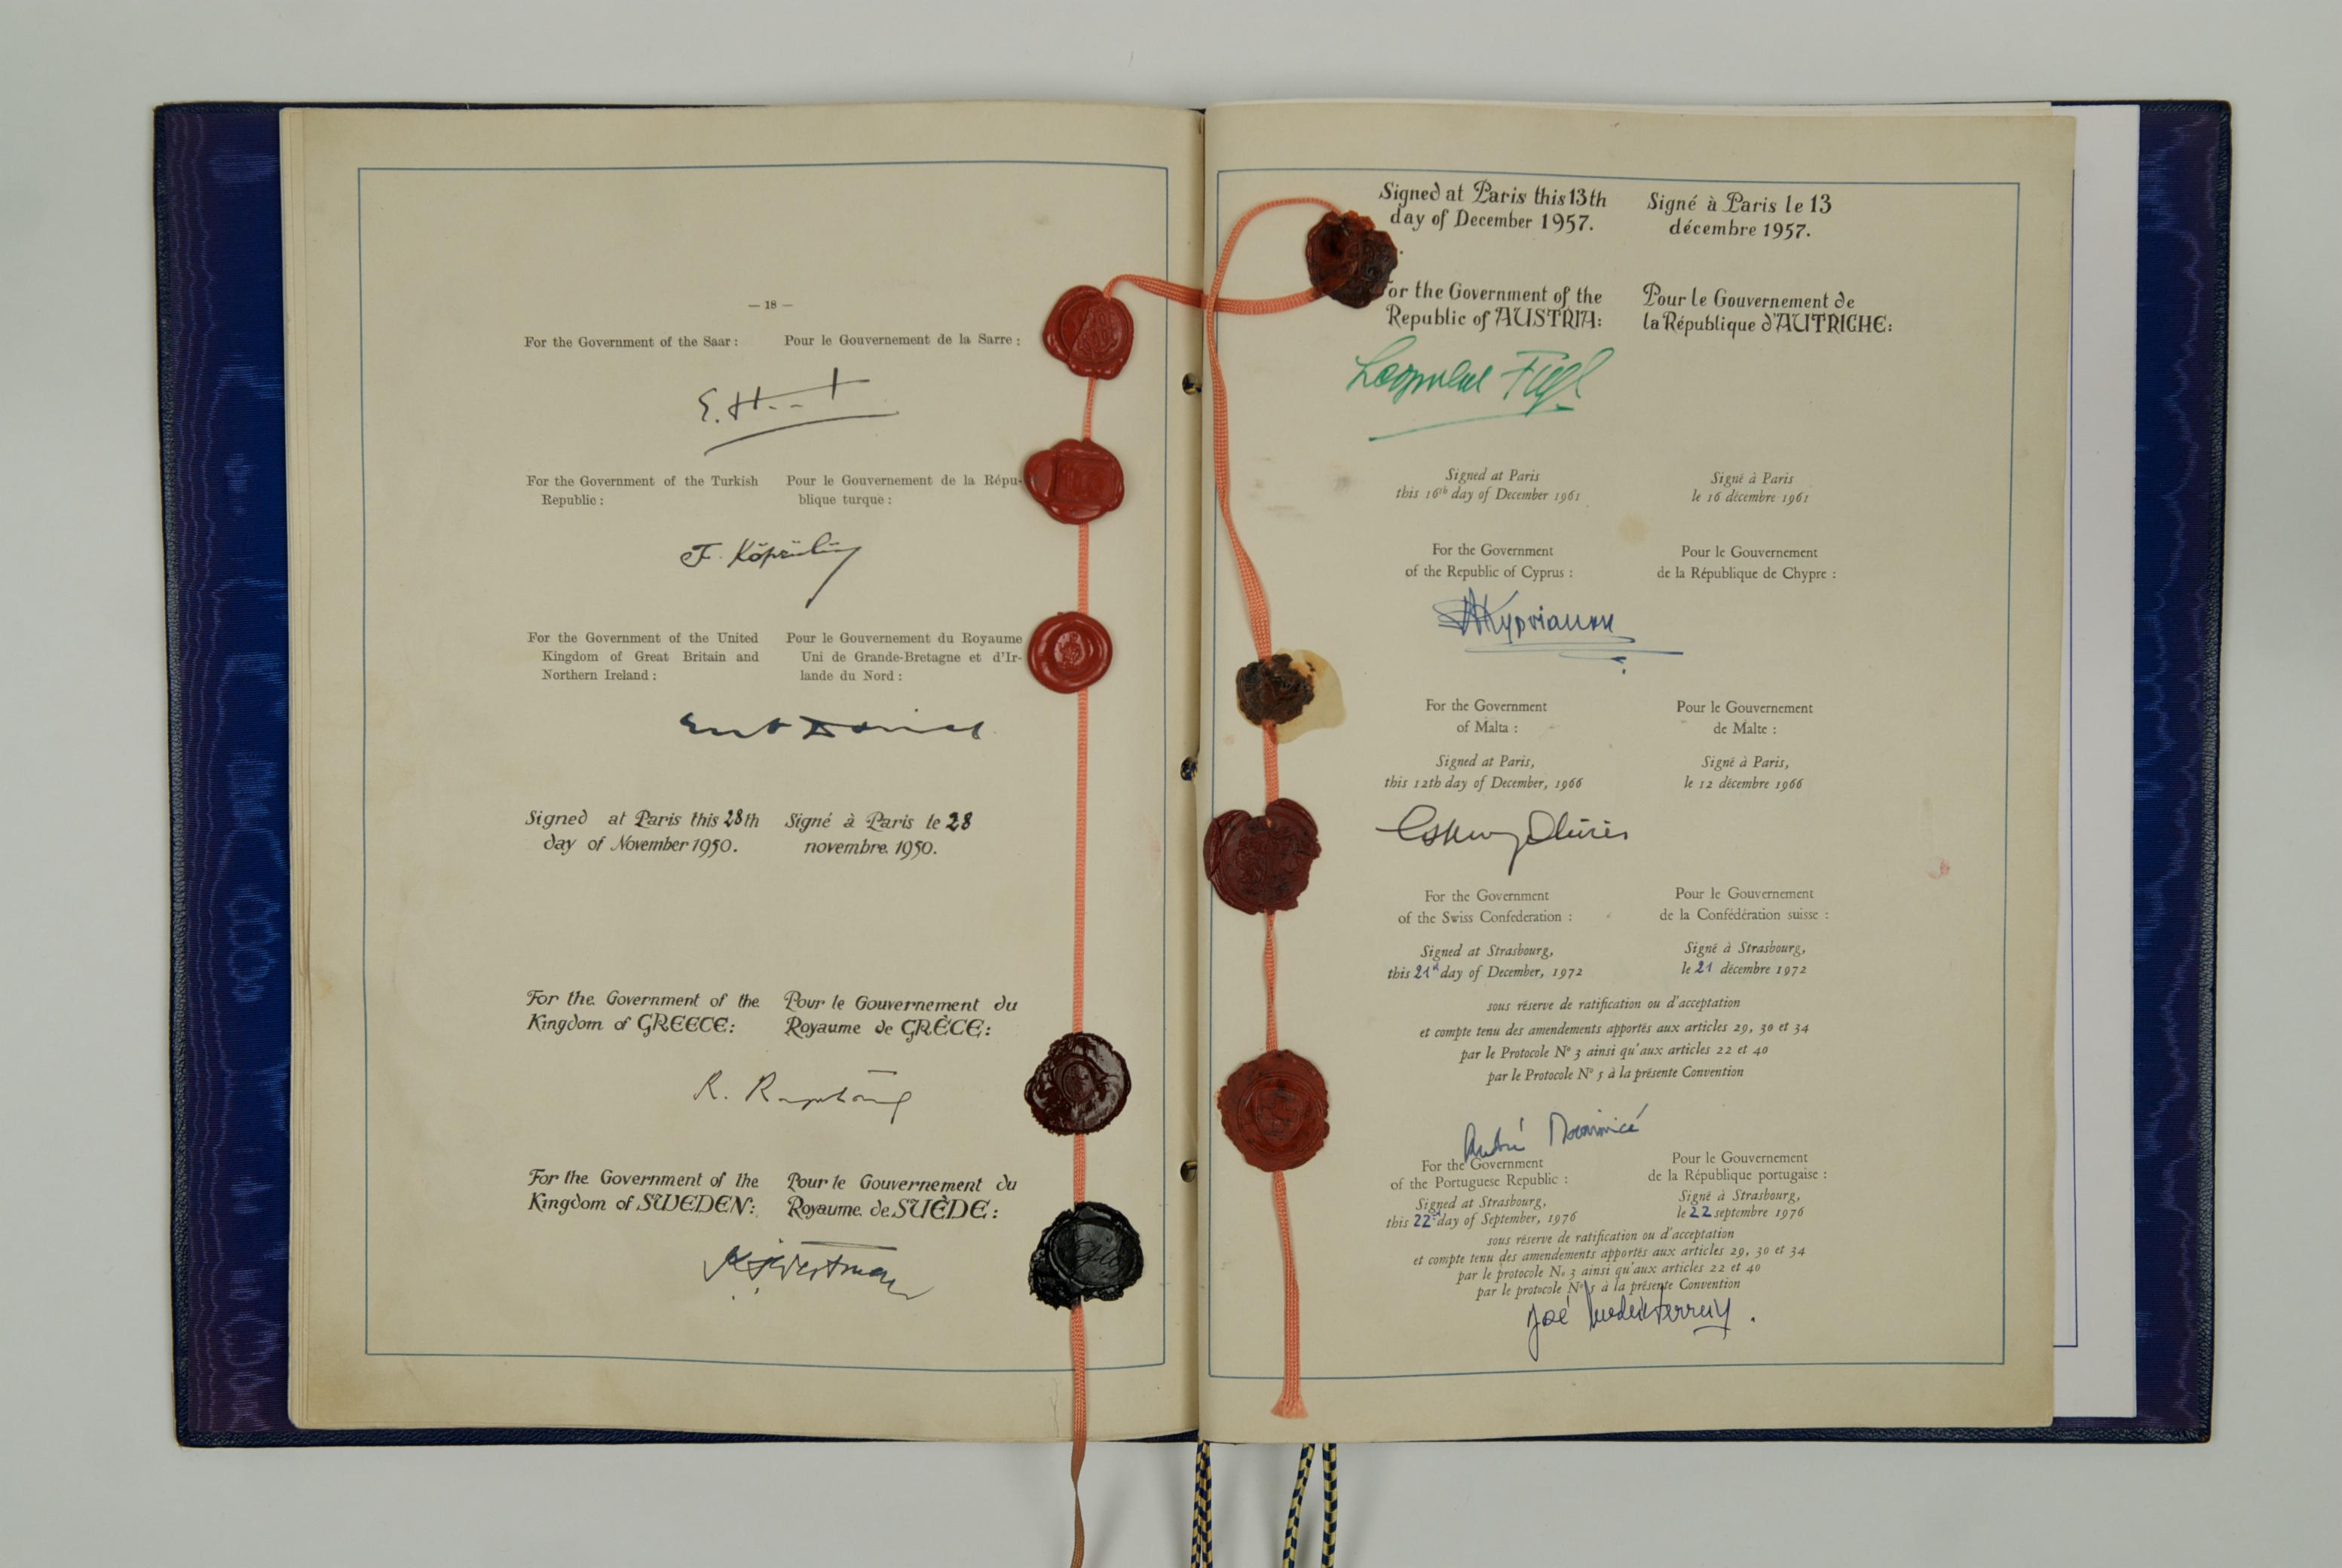 — 18 —
For the Government of the Saar :
Pour le Gouvernement de la Sarre :
E. H
For the Government of the Turkish
Republic :
Pour le Gouvernement de la Répu-
blique turque :
F. Köprülü
For the Government of the United
Kingdom of Great Britain and
Northern Ireland :
Pour le Gouvernement du Royaume
Uni de Grande-Bretagne et d'Ir-
lande du Nord :
Signed at Paris this 28th
day of November 1950.
Signé à Paris le 28
novembre 1950.
For the Government of the
Kingdom of GREECE:
Pour le Gouvernement du
Royaume de GRÈCE:
R.
For the Government of the
Kingdom of SWEDEN:
Pour le Gouvernement du
Royaume de SUÈDE:
Westman
Signed at Paris this 13th
day of December 1957.
Signé à Paris le 13
décembre 1957.
For the Government of the
Republic of AUSTRIA:
Pour le Gouvernement de
la République d'AUTRICHE:
Leopold Figl
Signed at Paris
this 16th day of December 1961
Signé à Paris
le 16 décembre 1961
For the Government
of the Republic of Cyprus :
Pour le Gouvernement
de la République de Chypre :
Kyprianou
For the Government
of Malta :
Pour le Gouvernement
de Malte :
Signed at Paris,
this 12th day of December, 1966
Signé à Paris,
le 12 décembre 1966
For the Government
of the Swiss Confederation :
Pour le Gouvernement
de la Confédération suisse :
Signed at Strasbourg,
this 21st day of December, 1972
Signé à Strasbourg,
le 21 décembre 1972
sous réserve de ratification ou d'acceptation
et compte tenu des amendements apportés aux articles 29, 30 et 34
par le Protocole Nº 3 ainsi qu'aux articles 22 et 40
par le Protocole Nº 5 à la présente Convention
André
For the Government
of the Portuguese Republic :
Pour le Gouvernement
de la République portugaise :
Signed at Strasbourg,
this 22d day of September, 1976
Signé à Strasbourg,
le 22 septembre 1976
sous réserve de ratification ou d'acceptation
et compte tenu des amendements apportés aux articles 29, 30 et 34
par le protocole No 3 ainsi qu'aux articles 22 et 40
par le protocole No 5 à la présente Convention
José